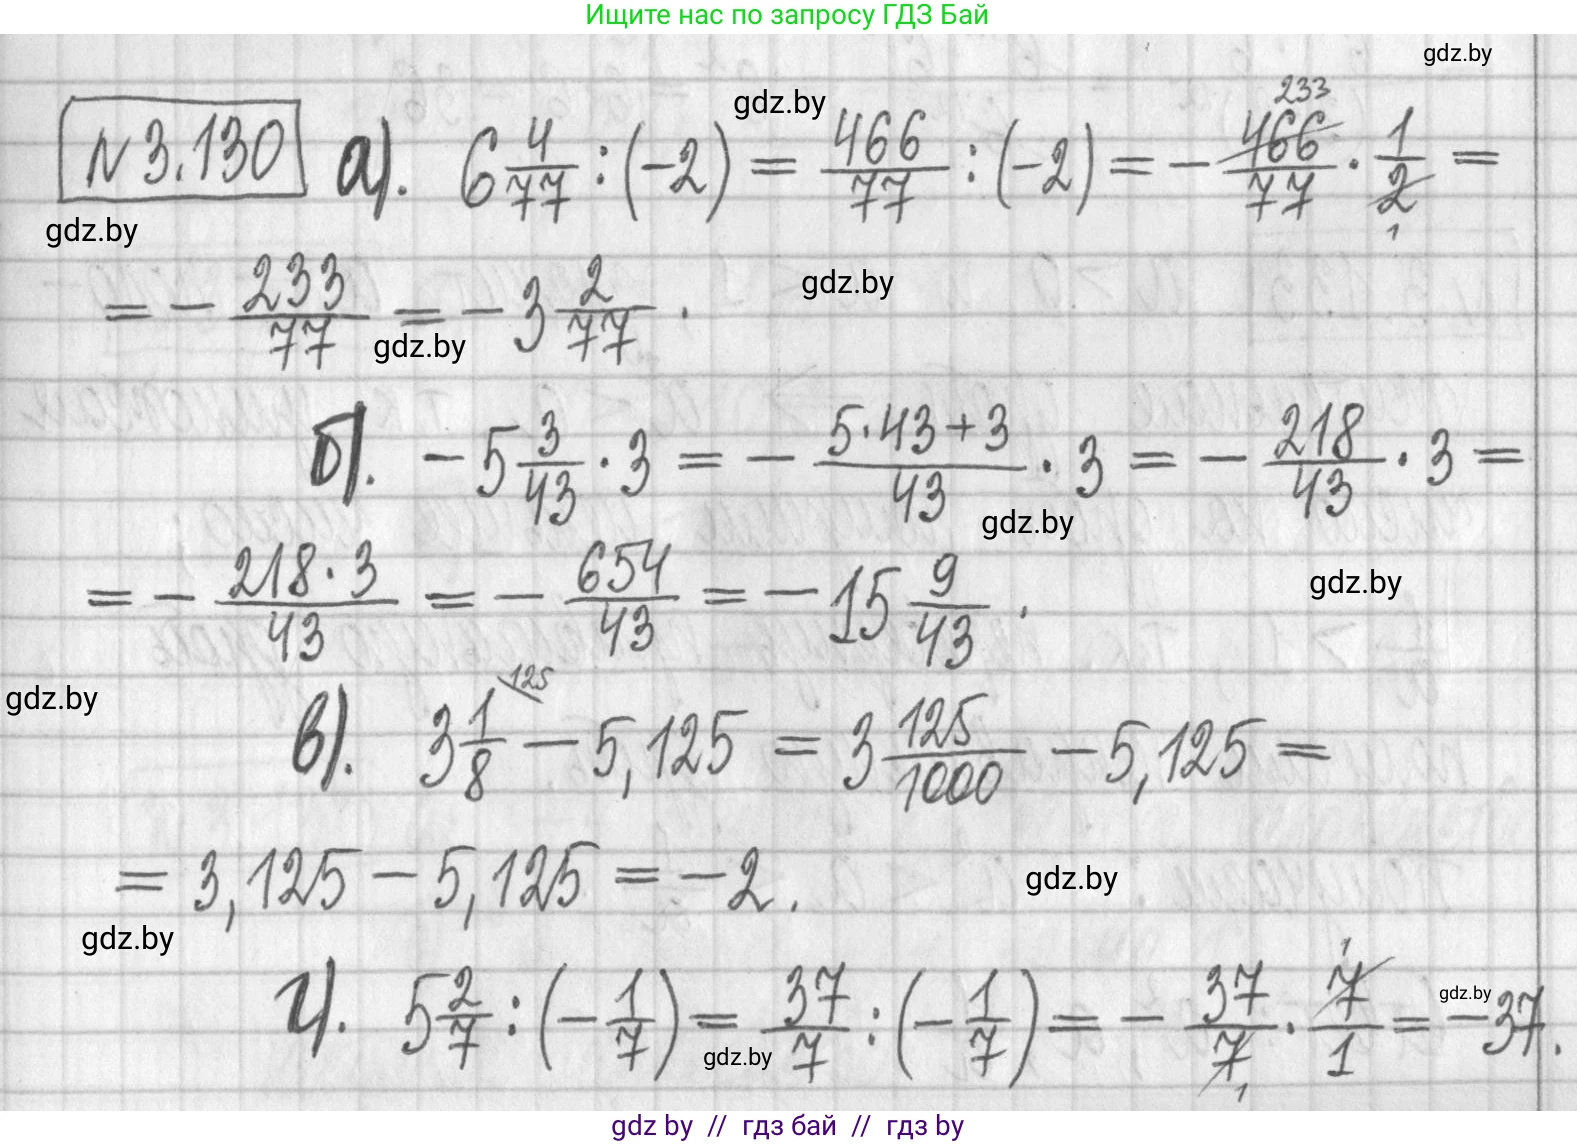 Ищите нас по запросу ГДЗ Бай
gdz.by
N 3.130 а). 6 4/77 : (-2) = 466/77 : (-2) = - 466/77 · 1/2 =
233
1
gdz.by
gdz.by
= - 233/77 = -3 2/77 .
gdz.by
gdz.by
б). -5 3/43 · 3 = - 5·43+3/43 · 3 = - 218/43 · 3 =
gdz.by
= - 218·3/43 = - 654/43 = -15 9/43 .
gdz.by
gdz.by
в). 3 1/8 - 5,125 = 3 125/1000 - 5,125 =
125
= 3,125 - 5,125 = -2.
gdz.by
gdz.by
г). 5 2/7 : (- 1/7) = 37/7 : (- 1/7) = - 37/7 · 7/1 = -37.
1
1
gdz.by
gdz.by
gdz by // гдз бай // гдз by